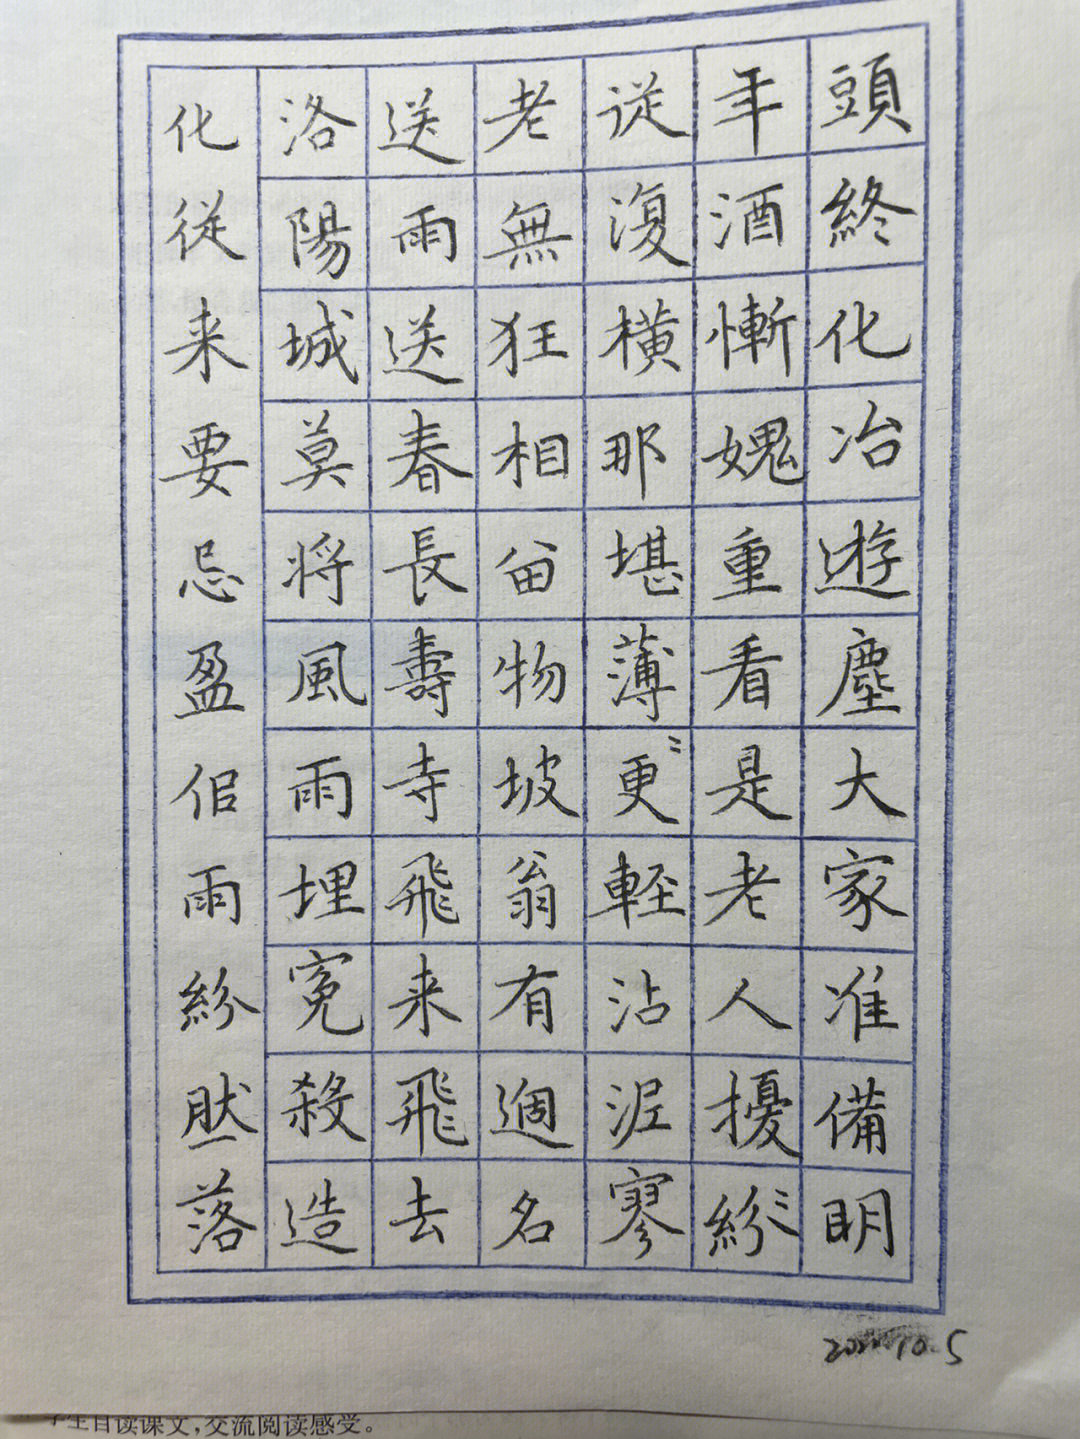 頭終化冶遊塵大家准備明
年酒慚媿重看是老人擾紛〻
従復橫那堪薄更〻輕沾泥寥
老無狂相留物坡翁有週名
送雨送春長壽寺飛来飛去
洛陽城莫將風雨埋冤殺造
化従来要忌盈佀雨紛然落
10.5
学生自读课文,交流阅读感受。